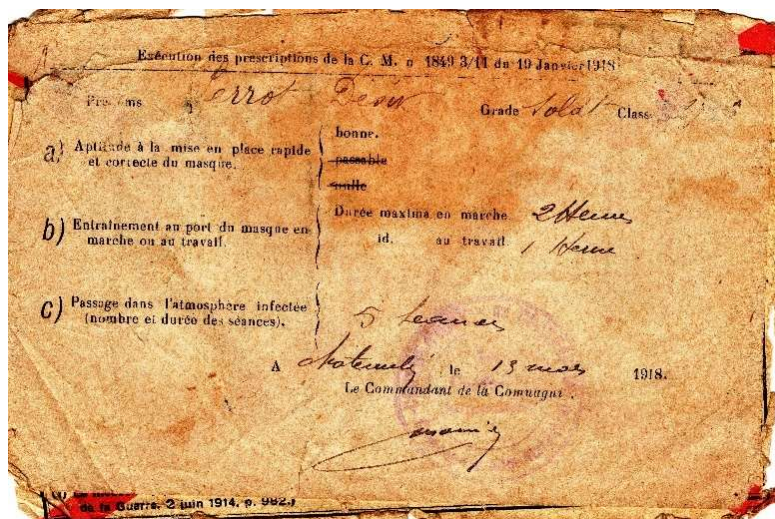 Exécution des prescriptions de la C. M. n 1849 3/11 du 19 Janvier 1918
Grade Soldat Class
a) Aptitude à la mise en place rapide
et correcte du masque.
bonne.
passable
nulle
b) Entraînement au port du masque en
marche ou au travail.
Durée maxima en marche 2 Heures
id. au travail 1 Heure
c) Passage dans l'atmosphère infectée
(nombre et durée des séances).
5 séances
A le 13 mars 1918.
Le Commandant de la Compagnie.
de la Guerre. 2 juin 1914. p. 982.)